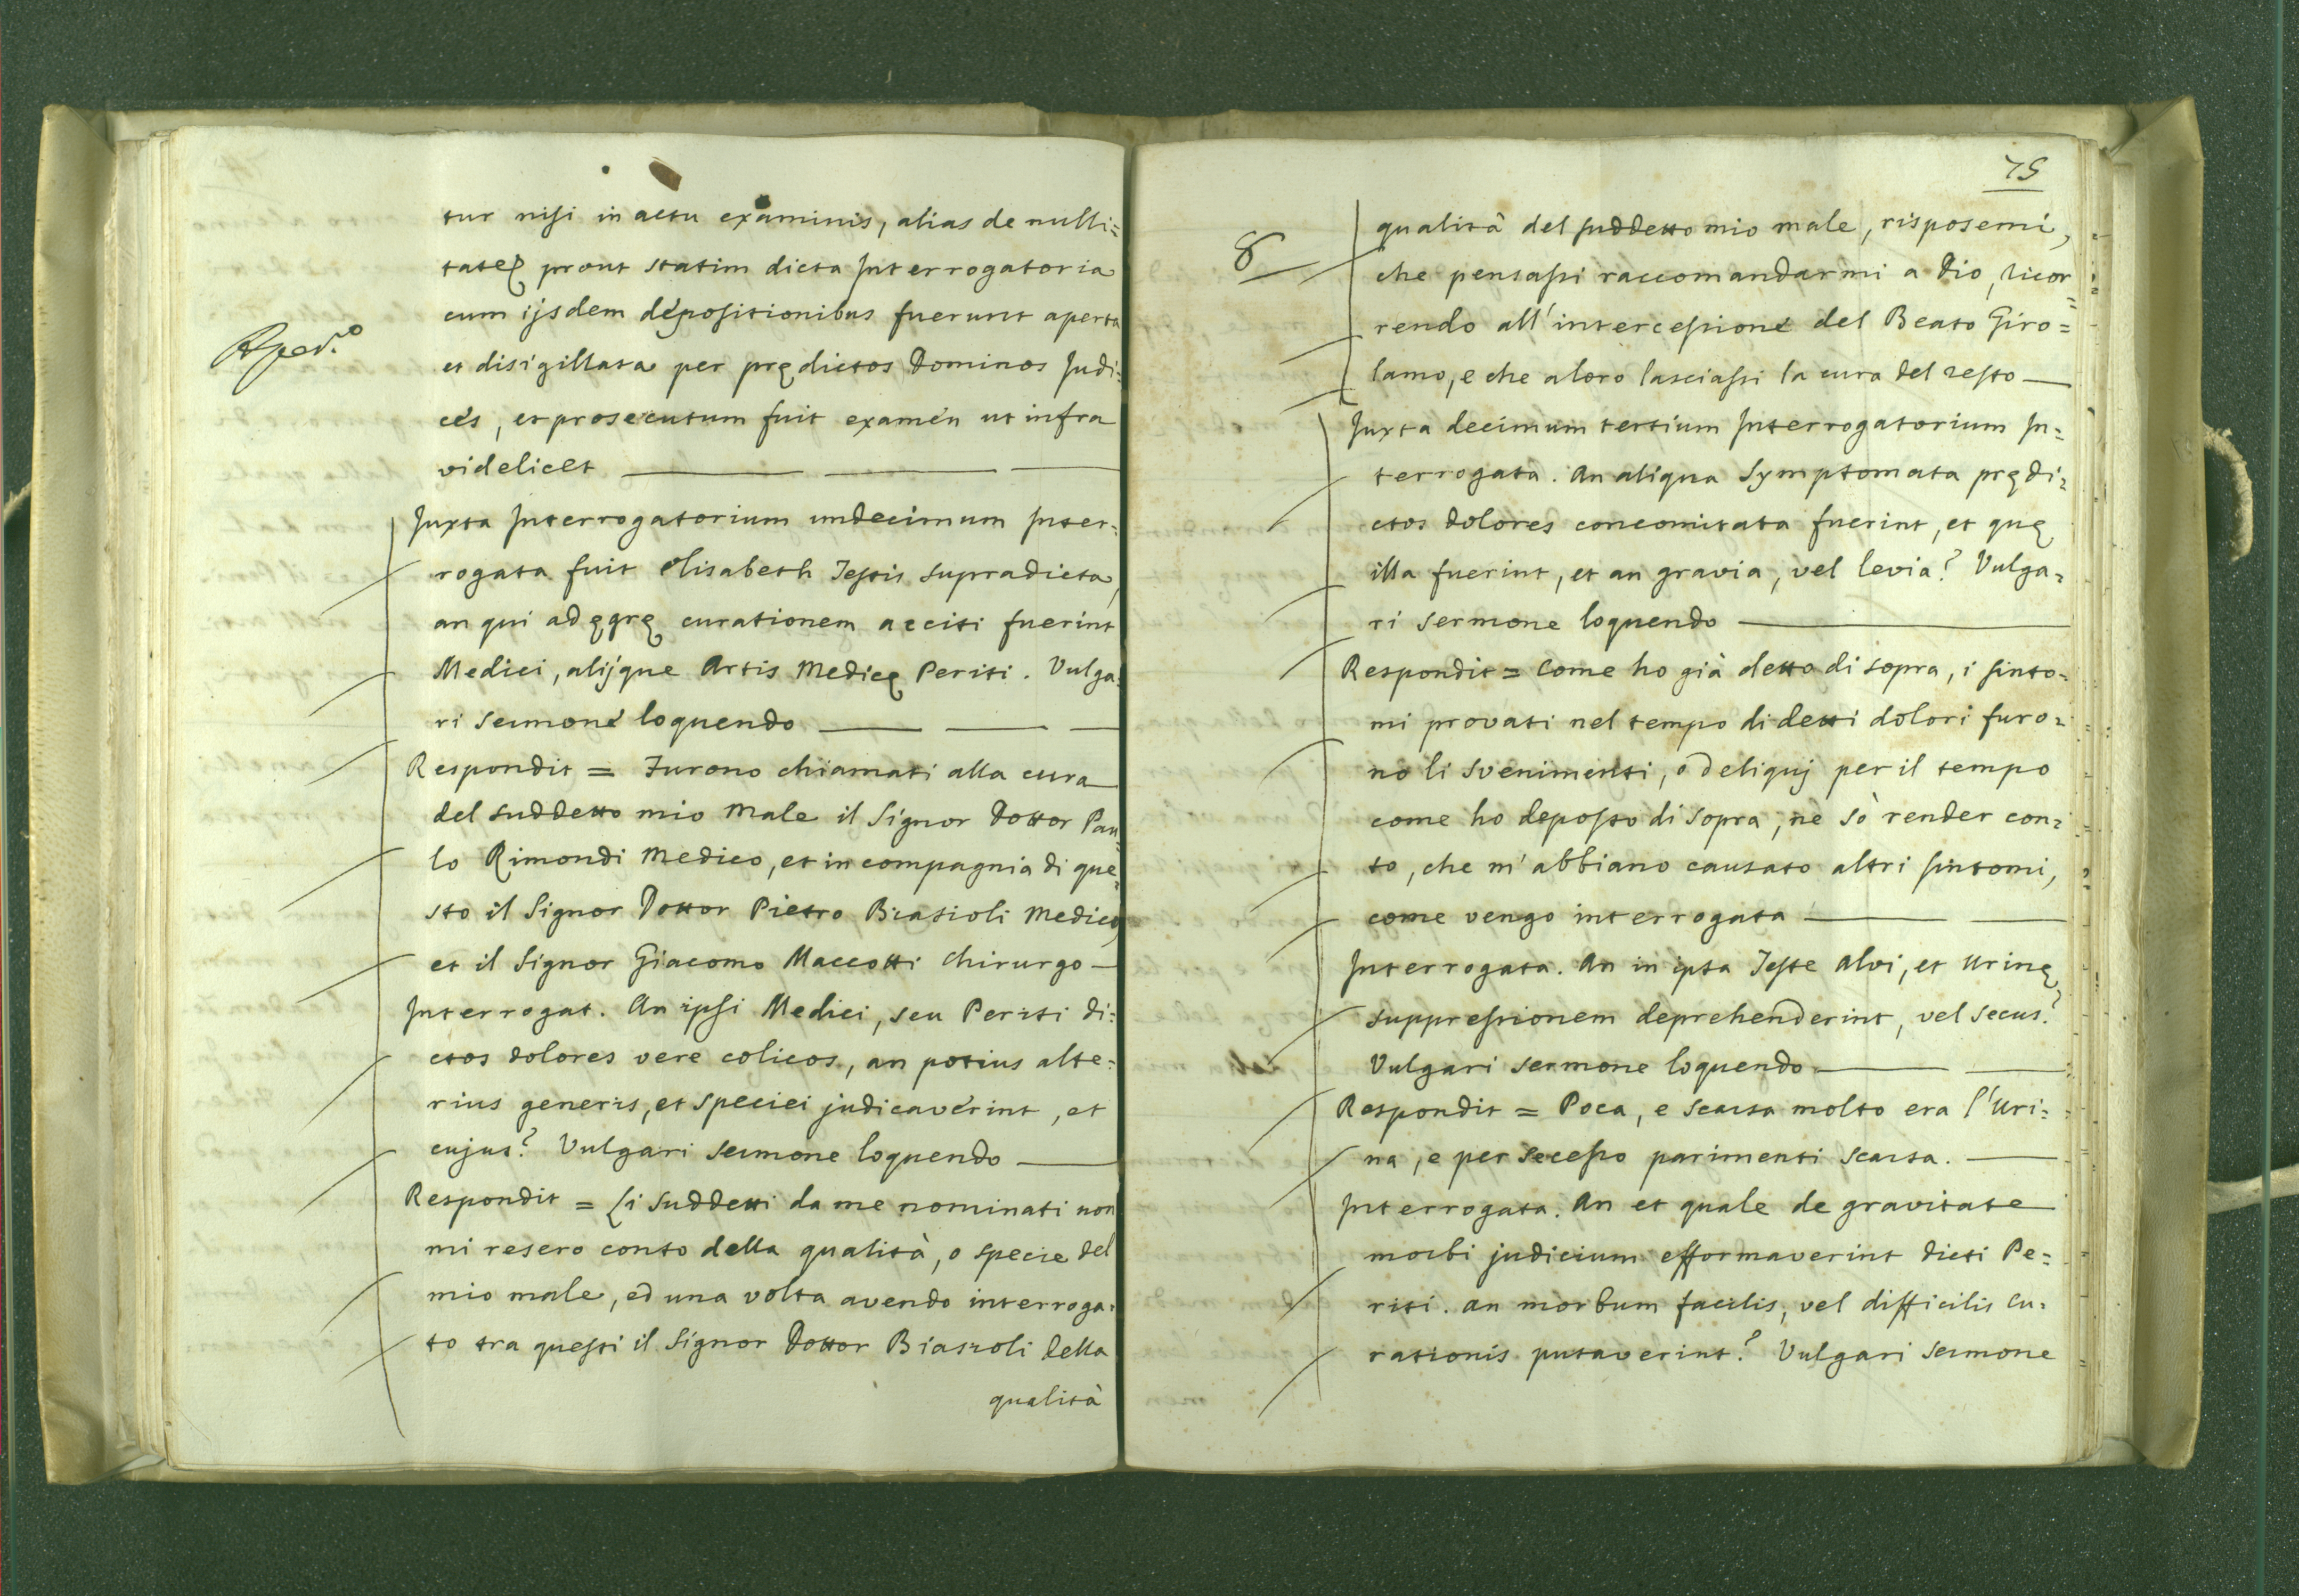 tur nisi in actu examinis, alias de nulli=
tate prout statim dicta Interrogatoria
cum ijsdem depositionibus fuerunt aperta
et disigillata per prędictos Dominos Judi=
ces, et prosecutum fuit examen ut infra
videlicet
Juxta Interrogatorium undecimum Inter=
rogata fuit Elisabeth Testis supradicta,
an qui ad ęgrę curationem acciti fuerint
Medici, alijque Artis Medicę Periti. Vulga=
ri sermone loquendo
Respondit = Furono chiamati alla cura
del suddetto mio male il Signor Dottor Pau=
lo Rimondi Medico, et in compagnia di que=
sto il Signor Dottor Pietro Biasioli Medico,
et il Signor Giacomo Maccotti Chirurgo
Interrogat. An ipsi Medici, seu Periti di=
ctos dolores vere colicos, an potius alte=
rius generis, et speciei judicaverint, et
cujus? Vulgari sermone loquendo
Respondit = Li suddetti da me nominati non
mi resero conto della qualità, o specie del
mio male, ed una volta avendo interroga=
to tra questi il Signor Dottor Biasioli della
qualità
75
8
qualità del suddetto mio male, risposemi,
che pensassi raccomandarmi a Dio, ricor=
rendo all'intercessione del Beato Giro=
lamo, e che a loro lasciassi la cura del resto
Juxta decimum tertium Interrogatorium In=
terrogata. An aliqua Symptomata prędi=
ctos dolores concomitata fuerint, et quę
illa fuerint, et an gravia, vel levia? Vulga=
ri sermone loquendo
Respondit = Come ho già detto di sopra, i sinto=
mi provati nel tempo di detti dolori furo=
no li svenimenti, o deliquj per il tempo
come ho deposto di sopra, nè sò render con=
to, che m'abbiano causato altri sintomi,
come vengo interrogata
Interrogata. An in ipsa Teste Alvi, et Urinę
suppressionem deprehenderint, vel secus?
Vulgari sermone loquendo
Respondit = Poca, e scarsa molto era l'Uri=
na, e per secesso parimenti scarsa.
Interrogata. An et quale de gravitate
morbi judicium efformaverint dicti Pe=
riti. an morbum facilis, vel difficilis cu=
rationis putaverint? Vulgari sermone